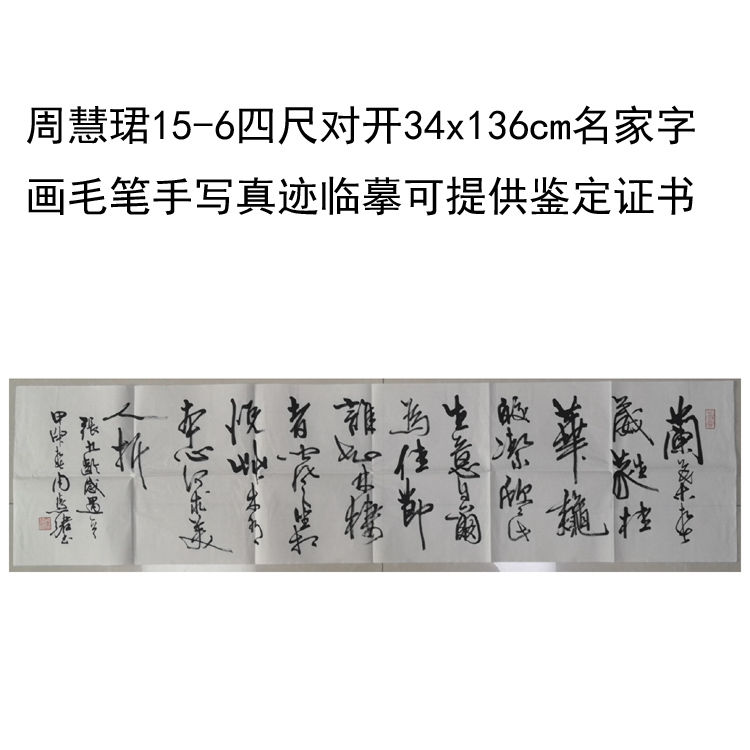 周慧珺15-6四尺对开34x136cm名家字
画毛笔手写真迹临摹可提供鉴定证书
蘭葉春
葳蕤桂
華穐
皎潔欣欣此
生意自爾
為佳節
誰知林棲
者聞風坐相
悅草木有
本心何求美
人折
張九齡感遇
甲 周慧珺書